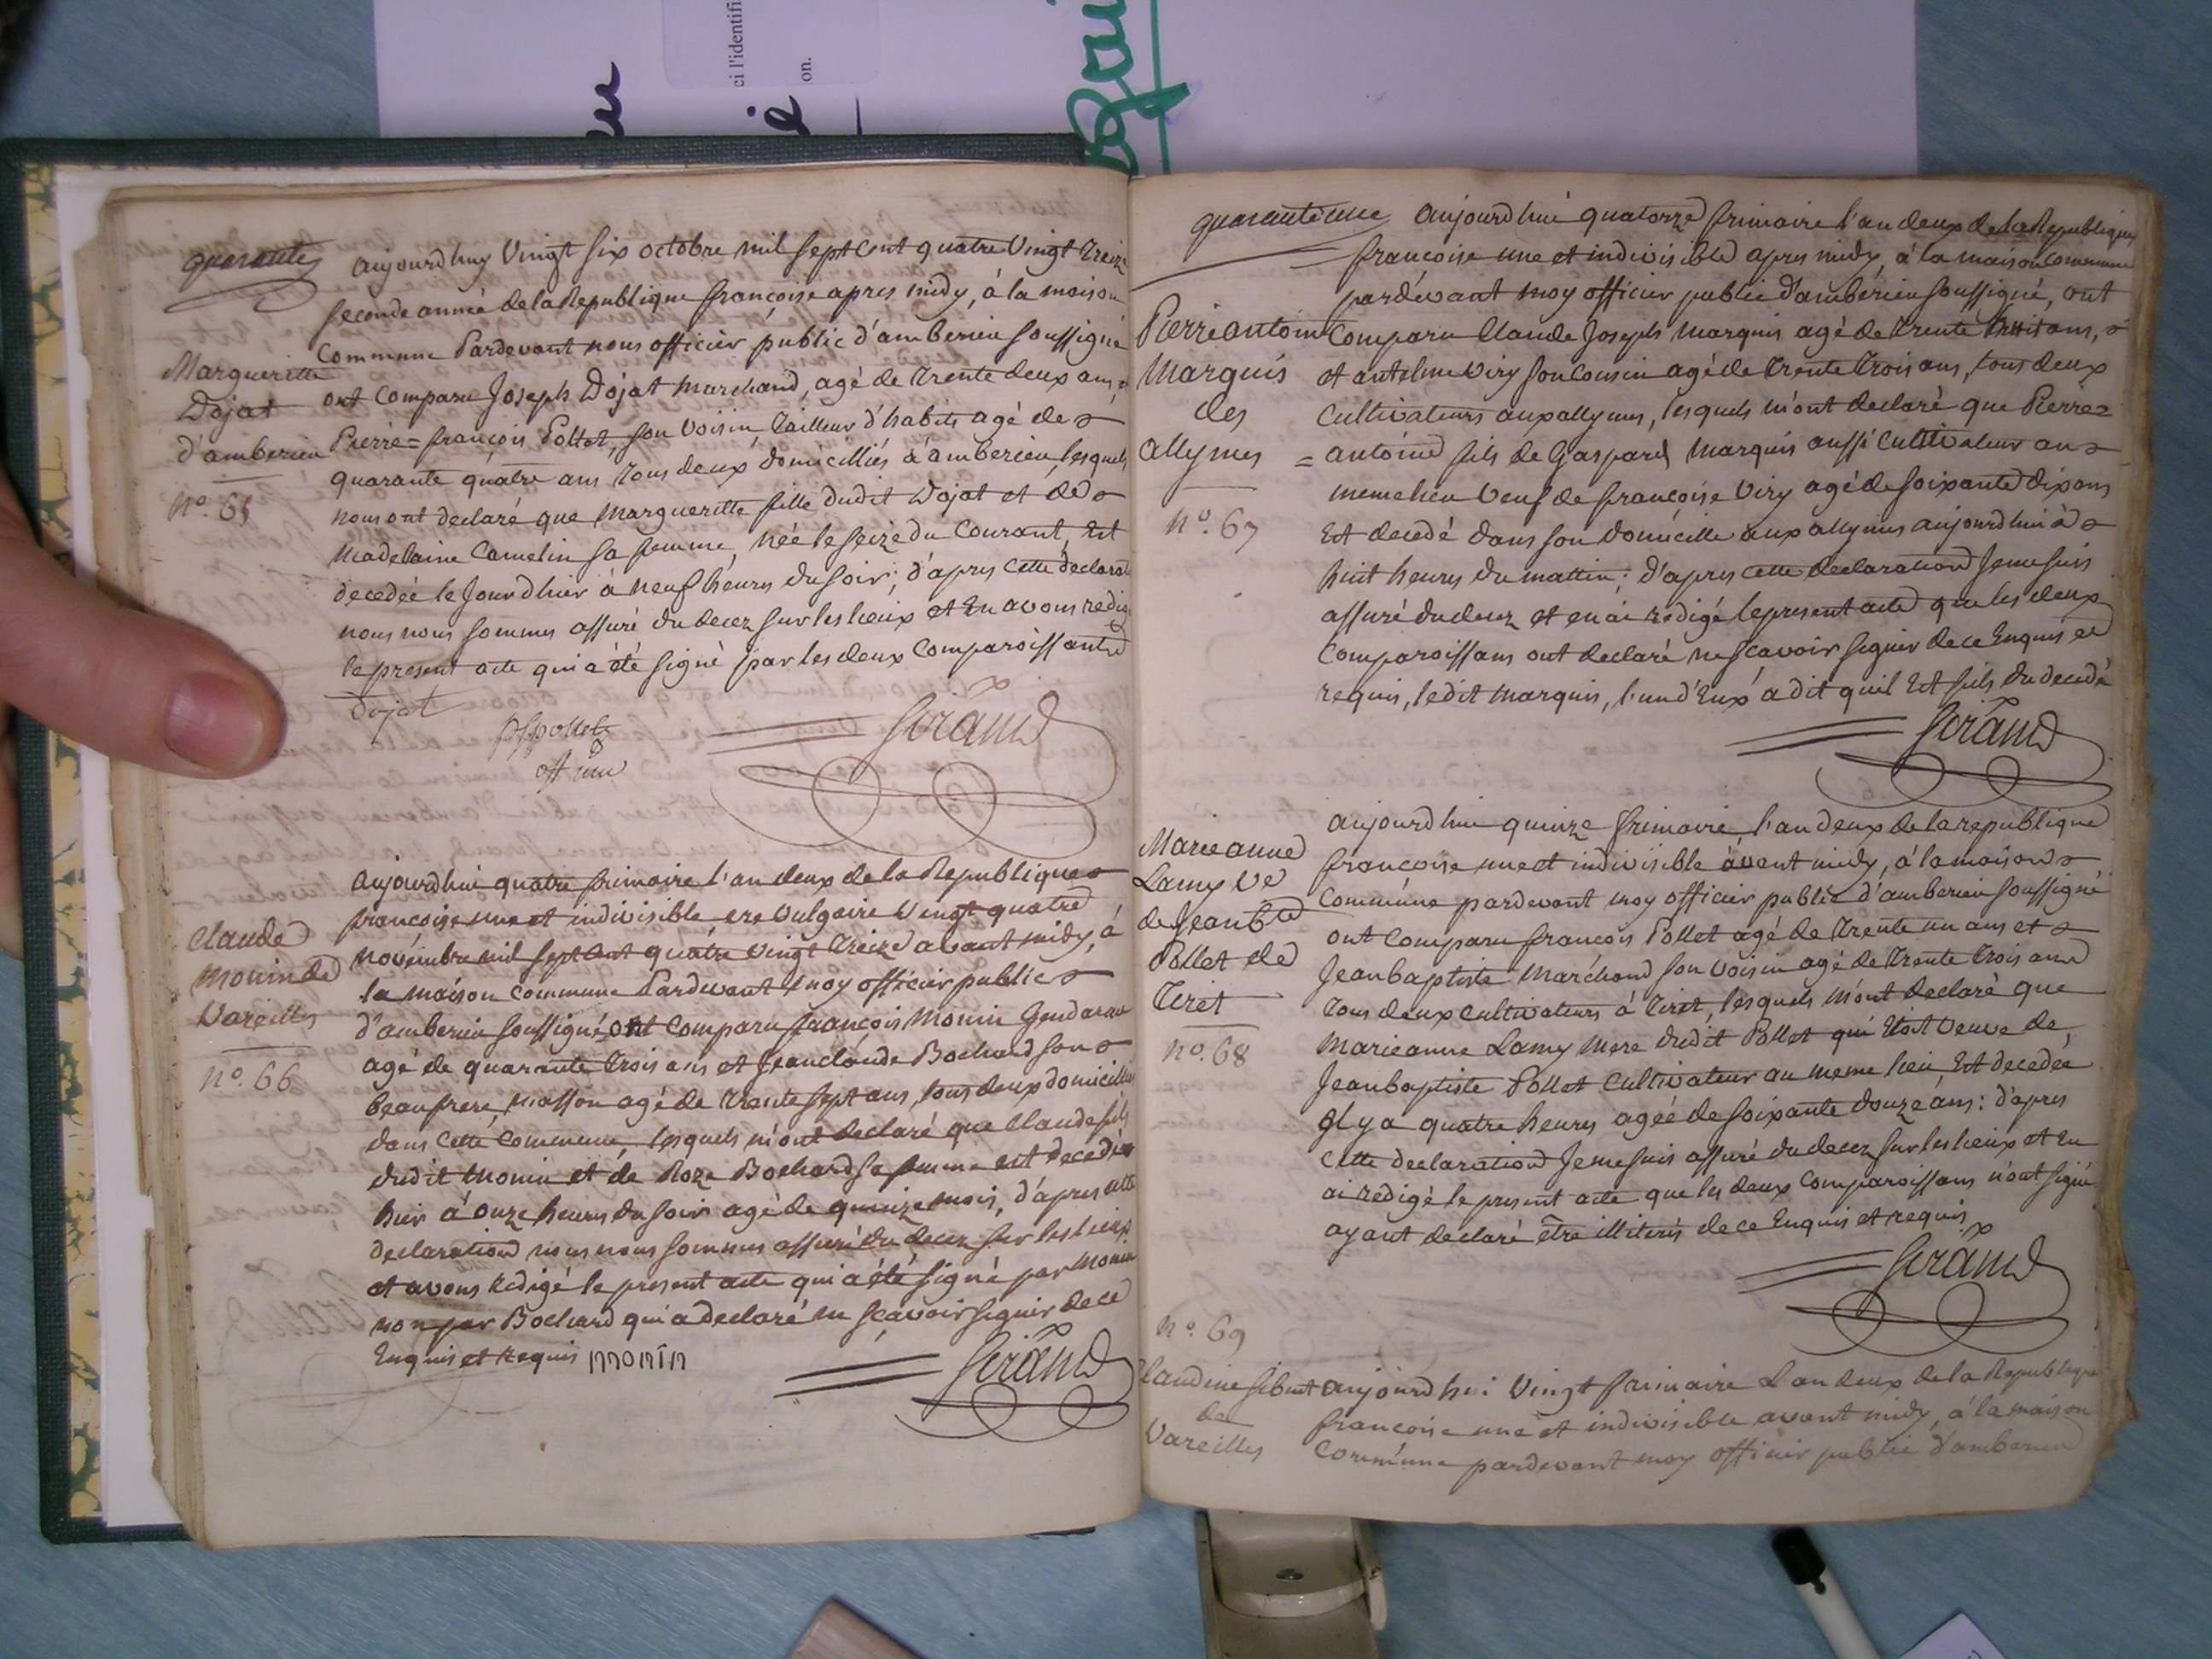 ci l'identifi
on.
quarante
aujourd huy vingt six octobre mil sept cent quatre vingt treize
seconde année de la Republique françoise apres midy, à la maison
Commune Pardevant nous officier public d'amberieu soussigné
Margueritte
Dojat
d'amberieu
n.º 65
ont comparu Joseph Dojat marchand, agé de trente deux ans, &
Pierre=françois Pollet, son voisin, tailleur d'habits agé de
quarante quatre ans tous deux domicilliés à amberieu, lesquels
nous ont declaré que margueritte fille dudit Dojat et de
madelaine Camelin sa femme, née le seize du Courant, Est
decedée le jourdhier à neuf heures du soir; d'apres cette declarat
nous nous sommes assuré du decez sur les lieux et En avons redigé
le present acte qui a été signé par les deux Comparoissants
Dojat
Girand
Claude
monin de
Vareilles
n.º 66
aujourdhui quatre frimaire l'an deux de la Republique
francoise une et indivisible, ere vulgaire vingt quatre
novembre mil sept cent quatre vingt treize avant midy, à
la maison commune Pardevant moy officier public
d'amberieu soussigné, ont comparu françois monin Gendarme
agé de quarante trois ans et Jeanclaude Bochard son
beaufrere, masson agé de trente sept ans, tous deux domicilliés
dans cette Commune, lesquels m'ont declaré que Claude fils
dudit monin et de Roze Bochard sa femme est decedé
hier à onze heures du soir agé de quinze mois, d'apres cette
declaration nous nous sommes assuré du decez sur les lieux
et avons redigé le present acte qui a été signé par monin
non par Bochard qui a declaré ne sçavoir signer de ce
Enquis et Requis monin
Girand
quarante une
aujourdhui quatorze frimaire l'an deux de la Republique
francoise une et indivisible apres midy, à la maison commune
pardevant moy officier public d'amberieu soussigné, ont
Pierre antoine
Marquis
des
allymes
n.º 67
Comparu Claude Joseph marquis agé de trente huit ans,
et antelme viry son Cousin agé de trente trois ans, tous deux
Cultivateurs aux allymes, lesquels m'ont declaré que Pierre=
=antoine fils de Gaspard marquis aussi Cultivateur au
meme lieu veuf de françoise viry agé de soixante dix ans
Est decedé dans son domicille aux allymes aujourdhui à
huit heures du mattin; d'apres cette declaration Je me suis
assuré du decez et en ai redigé le present acte que les deux
Comparoissans ont declaré ne sçavoir signer de ce Enquis et
requis, ledit marquis, l'un d'Eux a dit quil Est fils du decedé
Girand
Marieanne
Lamy ve
de Jean Bte
Pollet de
Tiret
n.º 68
aujourdhui quinze frimaire l'an deux de la republique
françoise une et indivisible avant midy, à la maison
Commune pardevant moy officier public d'amberieu soussigné
ont Comparu françois Pollet agé de trente un ans et
Jeanbaptiste marchand son voisin agé de trente trois ans
tous deux cultivateurs à Tiret, lesquels m'ont declaré que
marieanne Lamy mere dudit Pollet qui Etoit veuve de
Jeanbaptiste Pollet Cultivateur au meme lieu Est decedée
Il y a quatre heures agée de soixante douze ans: d'apres
cette declaration Je me suis assuré du decez sur les lieux et En
ai redigé le present acte que les deux Comparoissans n'ont signé
ayant declaré être illiterés de ce Enquis et requis
Girand
n.º 69
Claudine sibuet
de
Vareilles
aujourd hui vingt frimaire L'an deux de la Republique
françoise une et indivisible avant midy, à la maison
Commune pardevant moy officier public d'amberieu